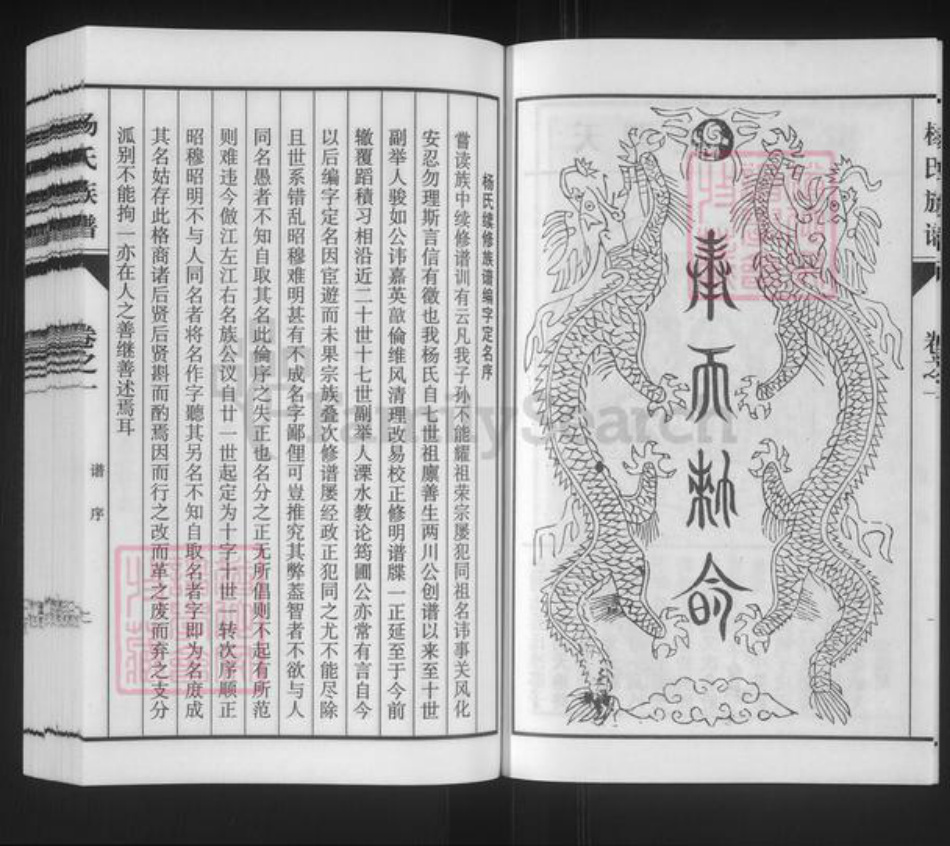 奉天敕命
杨氏族谱
卷之一
杨氏续修族谱编字定名序
嘗读族中续修谱训有云凡我子孙不能耀祖荣宗屡犯同祖名讳事关风化
安忍勿理斯言信有徵也我杨氏自七世祖廪善生两川公创谱以来至十世
副举人骏如公讳嘉英敿倫维风清理改易校正修明谱牒一正延至于今前
辙覆蹈積习相沿近二十世十七世副举人溧水教论筠圃公亦常有言自今
以后编字定名因宦遊而未果宗族叠次修谱屡经政正犯同之尤不能尽除
且世系错乱昭穆难明甚有不成名字鄙俚可豈推究其弊蓋智者不欲与人
同名愚者不知自取其名此倫序之失正也名分之正无所倡则不起有所范
则难违今倣江左江右名族公议自廿一世起定为十字十世一转次序顺正
昭穆昭明不与人同名者将名作字聽其另名不知自取名者字即为名庶成
其名姑存此格商诸后贤后贤斟而酌焉因而行之改而革之废而弃之支分
泒别不能拘一亦在人之善继善述焉耳
杨氏族谱
卷之一
谱序
FamilySearch